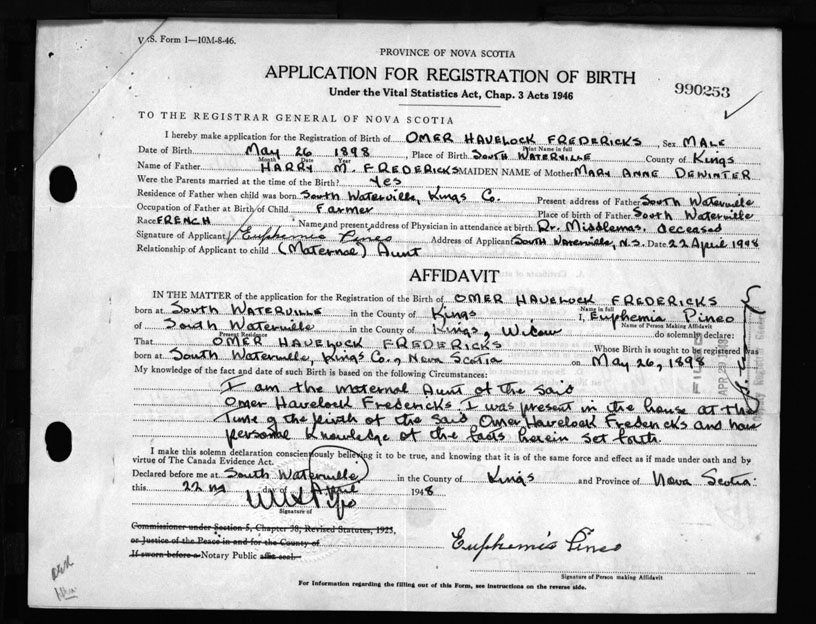 V.S. Form 1—10M-8-46.
PROVINCE OF NOVA SCOTIA
APPLICATION FOR REGISTRATION OF BIRTH
Under the Vital Statistics Act, Chap. 3 Acts 1946
990253
TO THE REGISTRAR GENERAL OF NOVA SCOTIA
I hereby make application for the Registration of Birth of OMER HAVELOCK FREDERICKS, Sex MALE
Print Name in full
Date of Birth May 26 1898, Place of Birth SOUTH WATERVILLE County of Kings
Month Date Year
Name of Father HARRY M. FREDERICKS MAIDEN NAME of Mother MARY ANNE DEWINTER
Were the Parents married at the time of the Birth? Yes
Residence of Father when child was born South Waterville, Kings Co. Present address of Father South Waterville
Occupation of Father at Birth of Child Farmer Place of birth of Father South Waterville
Race FRENCH Name and present address of Physician in attendance at birth Dr. Middlemas, deceased
Signature of Applicant Euphemia Pineo Address of Applicant South Waterville, N.S. Date 22 April 1948
Relationship of Applicant to child (Maternal) Aunt
AFFIDAVIT
IN THE MATTER of the application for the Registration of the Birth of OMER HAVELOCK FREDERICKS
Name in full
born at SOUTH WATERVILLE in the County of Kings I, Euphemia Pineo
Present Residence Name of Person Making Affidavit
of South Waterville in the County of Kings, Widow do solemnly declare:
That OMER HAVELOCK FREDERICKS Whose Birth is sought to be registered was
born at South Waterville, Kings Co., Nova Scotia on May 26, 1898
FILED
APR 29 1948
My knowledge of the fact and date of such Birth is based on the following Circumstances:
I am the maternal Aunt of the said
Omer Havelock Fredericks. I was present in the house at the
time of the birth of the said Omer Havelock Fredericks and have
personal knowledge of the facts herein set forth.
I make this solemn declaration conscientiously believing it to be true, and knowing that it is of the same force and effect as if made under oath and by
virtue of The Canada Evidence Act.
Declared before me at South Waterville in the County of Kings and Province of Nova Scotia:
this 22nd day of April 1948
Signature of
Commissioner under Section 5, Chapter 38, Revised Statutes, 1923,
or Justice of the Peace in and for the County of
If sworn before a Notary Public affix seal.
Euphemia Pineo
Signature of Person making Affidavit
For Information regarding the filling out of this Form, see instructions on the reverse side.